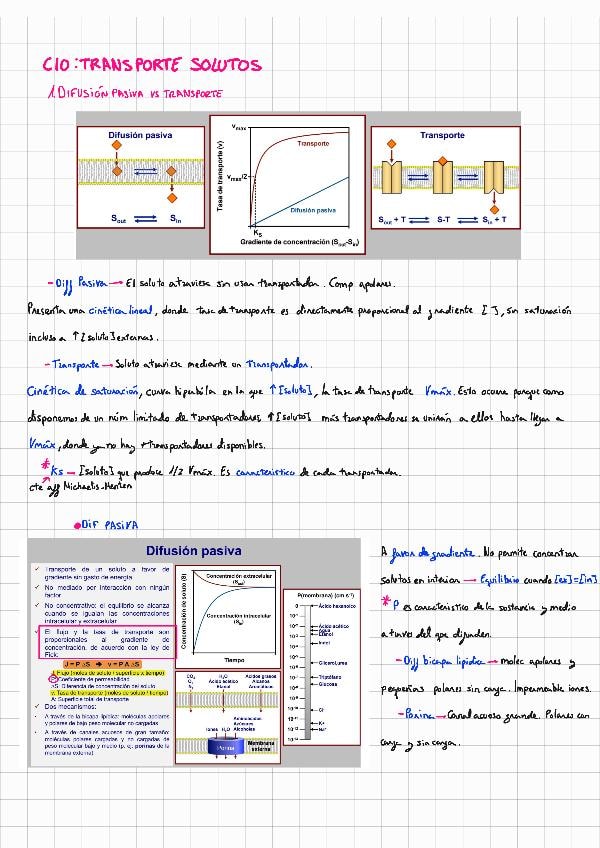 C10: TRANSPORTE SOLUTOS
1. DIFUSIÓN PASIVA VS TRANSPORTE
Difusión pasiva
Sout Sin
Vmax
Vmax/2
Tasa de transporte (v)
Transporte
Difusión pasiva
KS
Gradiente de concentración (Sout-Sin)
Transporte
Sout + T S-T Sin + T
- Diff Pasiva → El soluto atraviesa sin usar transportador. Comp apolares.
Presenta una cinética lineal, donde tasa de transporte es directamente proporcional al gradiente [ ], sin saturación
incluso a ↑ [soluto] externas.
- Transporte → Soluto atraviesa mediante un Transportador.
Cinética de saturación, curva hipérbola en la que ↑ [soluto], la tasa de transporte Vmáx. Esto ocurre porque como
disponemos de un núm limitado de transportadores, ↑ [soluto] más transportadores se unirán a ellos hasta llegar a
Vmáx, donde ya no hay + transportadores disponibles.
* Ks → [soluto] que produce 1/2 Vmáx. Es característico de cada transportador.
cte aff Michaelis-Menten
• DIF PASIVA
Difusión pasiva
✓ Transporte de un soluto a favor de
gradiente sin gasto de energía
✓ No mediado por interacción con ningún
factor
✓ No concentrativo: el equilibrio se alcanza
cuando se igualan las concentraciones
intracelular y extracelular
✓ El flujo y la tasa de transporte son
proporcionales al gradiente de
concentración, de acuerdo con la ley de
Fick:
J = P.ΔS ➔ v = P.A.ΔS
J: Flujo (moles de soluto / superficie x tiempo)
P: Coeficiente de permeabilidad
ΔS: Diferencia de concentración del soluto
v: Tasa de transporte (moles de soluto / tiempo)
A: Superficie total de transporte
✓ Dos mecanismos:
• A través de la bicapa lipídica: moléculas apolares
y polares de bajo peso molecular no cargadas
• A través de canales acuosos de gran tamaño:
moléculas polares cargadas y no cargadas de
peso molecular bajo y medio (p. ej. porinas de la
membrana externa)
Concentración de soluto (S)
Concentración extracelular
(Sout)
Concentración intracelular
(Sin)
Tiempo
CO2
O2
N2
H2O
Ácido acético
Etanol
Ácidos grasos
Alcanos
Aromáticos
Iones H2O
Aminoácidos
Azúcares
Alcoholes
Porina
Membrana
externa
P(membrana) (cm s-1)
Ácido hexanoico
Ácido acético
Agua
Etanol
Indol
Glicerol,urea
Triptófano
Glucosa
Cl-
K+
Na+
A favor de gradiente. No permite concentrar
solutos en interior → Equilibrio cuando [ex]=[in]
* P es característico de la sustancia y medio
a través del que difunden.
- Diff bicapa lipídica → molec apolares y
pequeñas polares sin carga. Impermeable iones.
- Porina → Canal acuoso grande. Polares con
carga y sin carga.